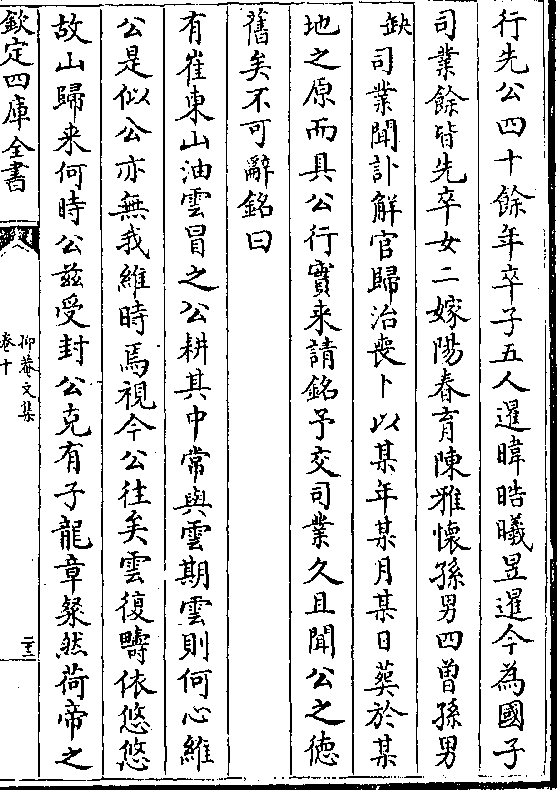 行先公四十餘年卒子五人暹暐晧曦昱暹今為國子
司業餘皆先卒女二嫁陽春育陳雅懷孫男四曾孫男
缺司業聞訃解官歸治喪卜以某年某月某日葬於某
地之原而具公行實来請銘予交司業久且聞公之徳
舊矣不可辭銘曰
有崔東山油雲冒之公耕其中常與雲期雲則何心維
公是似公亦無我維時焉視今公往矣雲復疇依悠悠
故山歸来何時公兹受封公克有子龍章粲然荷帝之
欽定四庫全書
抑菴文集
卷十
二十三